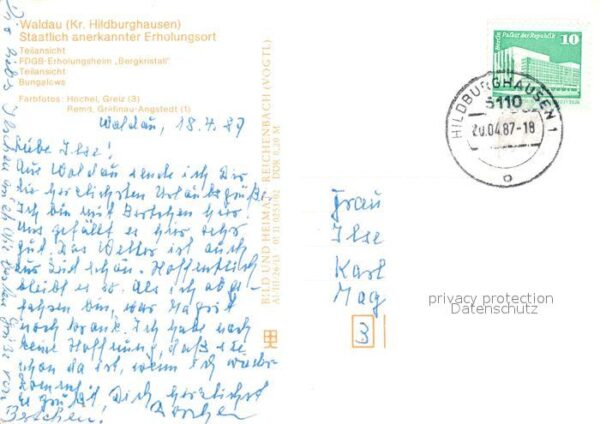 Waldau (Kr. Hildburghausen)
Staatlich anerkannter Erholungsort
Teilansicht
FDGB-Erholungsheim „Bergkristall"
Teilansicht
Bungalows
Farbfotos: Hochel, Greiz (3)
Remd, Gräfinau-Angstedt (1)
Waldau, 18.4.87
Liebe Ilse!
Aus Waldau sende ich Dir
die herzlichsten Urlaubsgrüße.
Ich bin mit Bertchen hier.
Uns gefällt es hier sehr
gut. Das Wetter ist auch
zur Zeit schön. Hoffentlich
bleibt es so. Als ich abge-
fahren bin, war
noch krank. Ich habe noch
keine Hoffnung, daß sie
schon da ist, wenn ich wieder
komme.
Es grüßt Dich herzlichst
Bertchen.
BILD UND HEIMAT REICHENBACH (VOGTL)
DDR 0,20 M
Berlin Palast der Republik
10
DDR
HILDBURGHAUSEN 1
6110
20.04.87-18
a
Frau
Ilse
Karl
Mag
3
privacy protection
Datenschutz